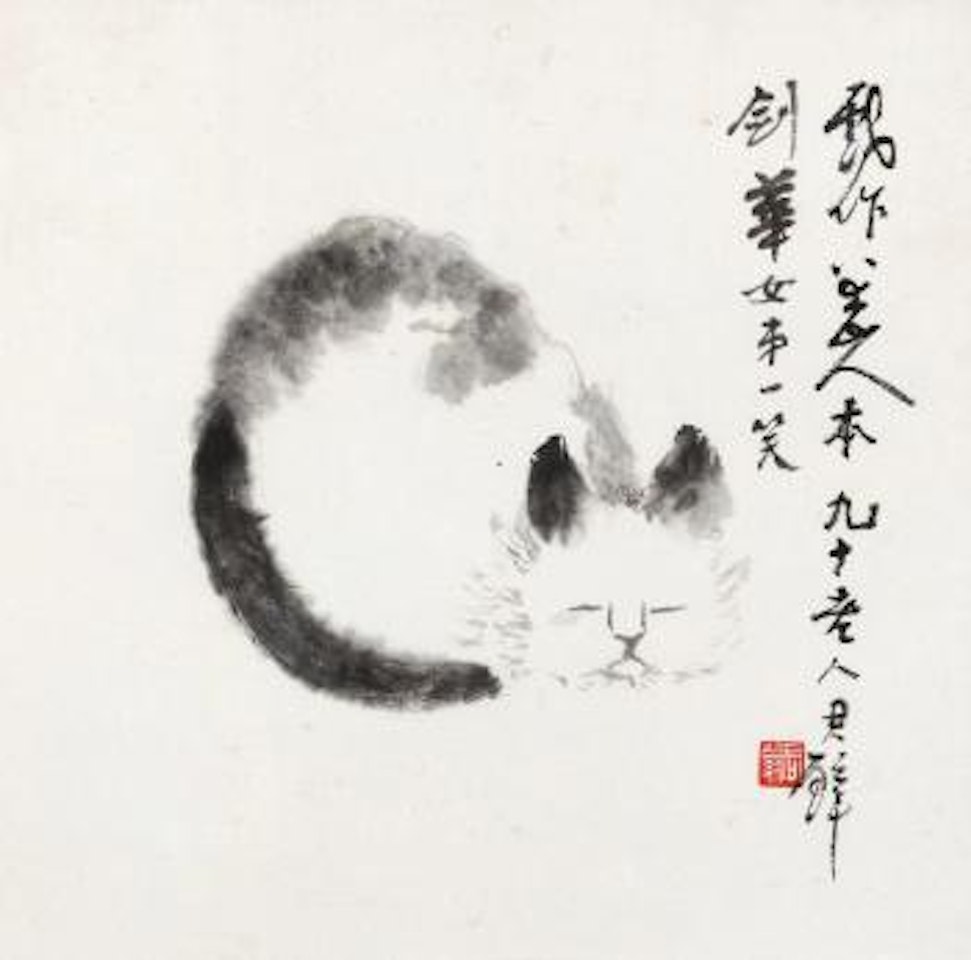 戲作八大山人本 九十老人君璧
劍華女弟一笑